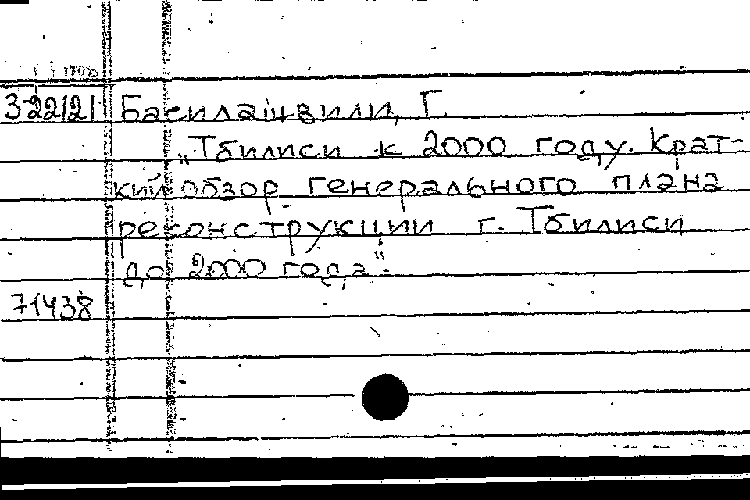 3-22121 Басилашвили, Г.
„Тбилиси к 2000 году. Крат-
кий обзор генерального плана
реконструкции г. Тбилиси
до 2000 года".
71438